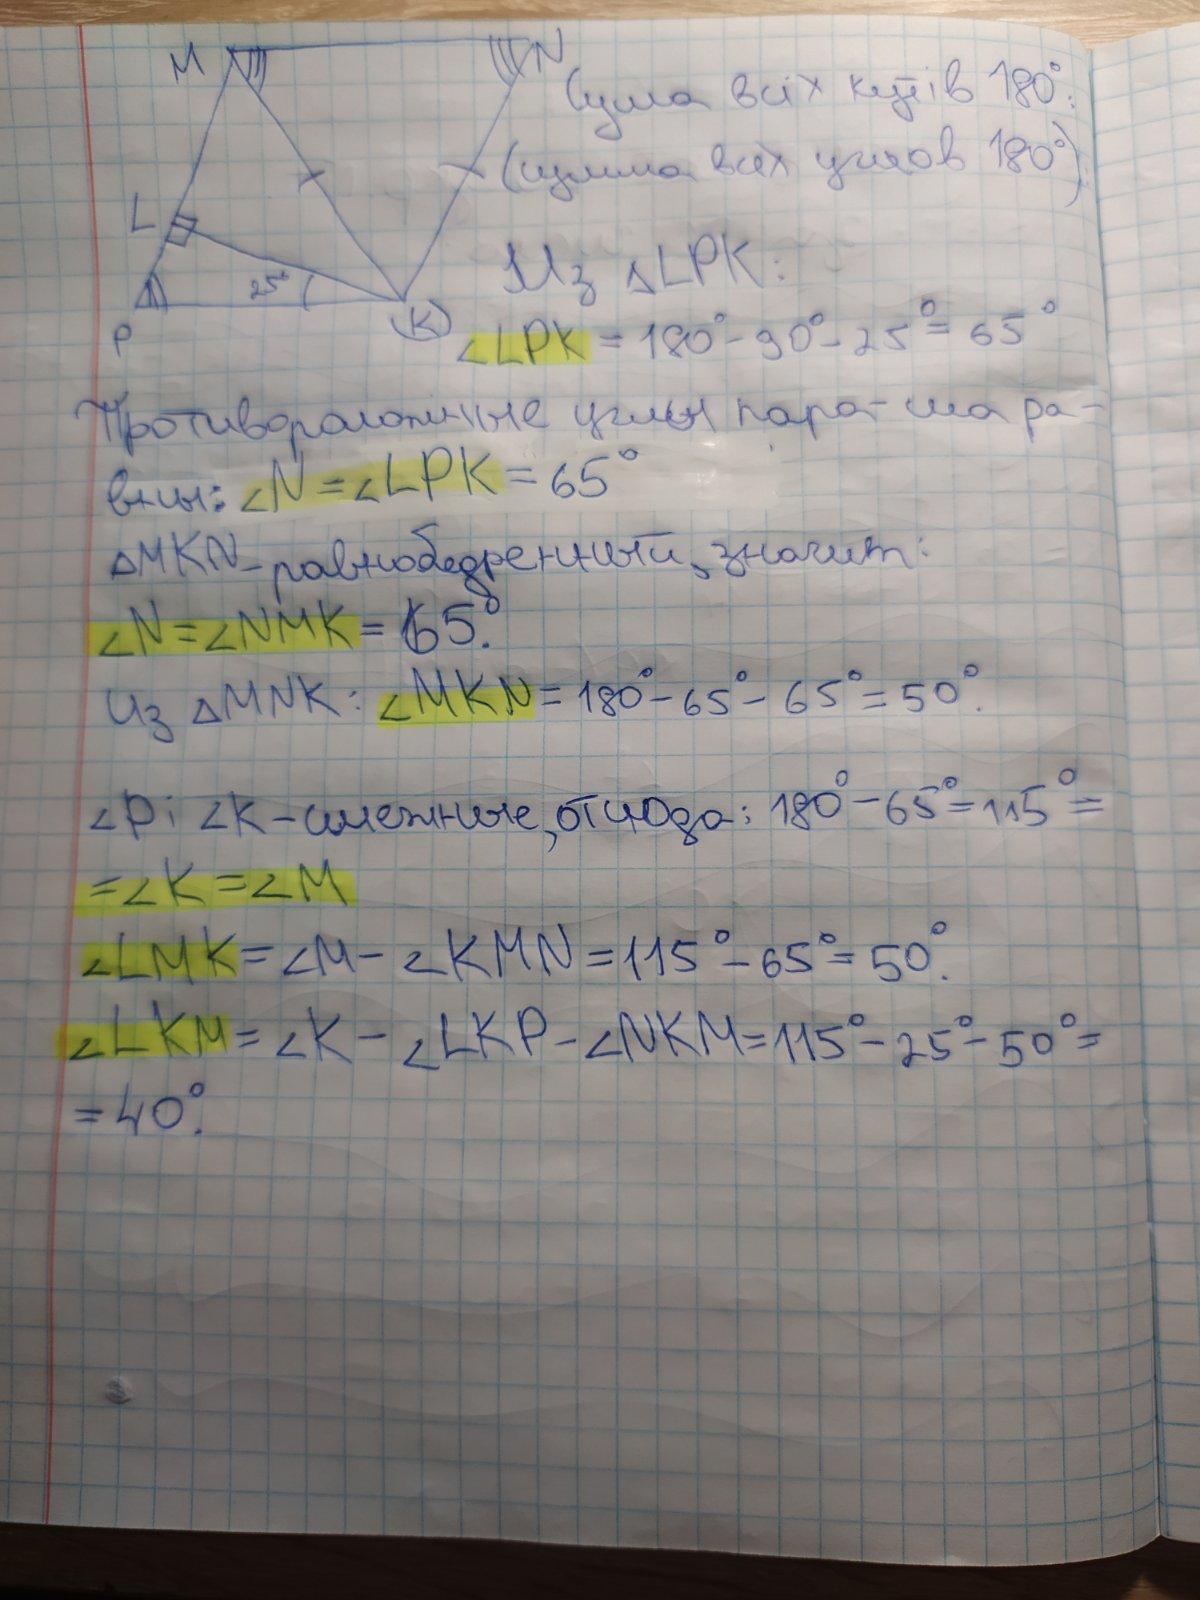 M
N
L
25°
P
(K)
Сума всіх кутів 180°.
(сумма всех углов 180°).
Из △LPK:
∠LPK = 180° - 90° - 25° = 65°
Противоположные углы парал-ма ра-
вны: ∠N = ∠LPK = 65°
△MKN - равнобедренный, значит:
∠N = ∠NMK = 65°.
Из △MNK: ∠MKN = 180° - 65° - 65° = 50°.
∠P і ∠K - смежные, отсюда: 180° - 65° = 115° =
= ∠K = ∠M
∠LMK = ∠M - ∠KMN = 115° - 65° = 50°.
∠LKM = ∠K - ∠LKP - ∠NKM = 115° - 25° - 50° =
= 40°.